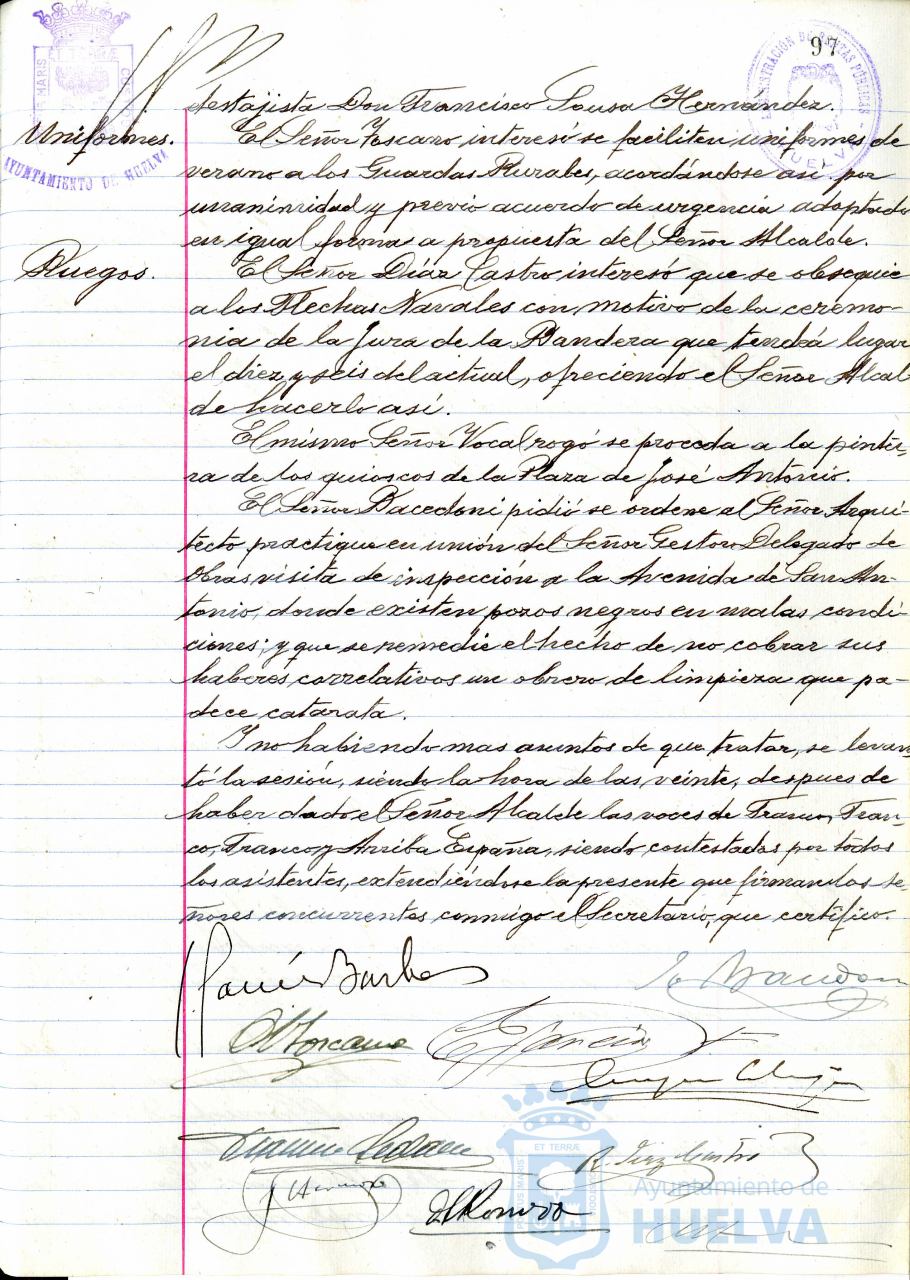 97
destajista Don Francisco Sousa Hernández.
Uniformes.
El Señor Toscano interesó se faciliten uniformes de
verano a los Guardas Rurales, acordándose así por
unanimidad y previo acuerdo de urgencia adoptado
en igual forma a propuesta del Señor Alcalde.
Ruegos.
El Señor Díaz Castro interesó que se obsequie
a los Flechas Navales con motivo de la ceremo-
nia de la Jura de la Bandera que tendrá lugar
el diez y seis del actual, ofreciendo el Señor Alcal
de hacerlo así.
El mismo Señor Vocal rogó se proceda a la pintu-
ra de los quioscos de la Plaza de José Antonio.
El Señor pidió se ordene al Señor Arqui-
tecto practique en unión del Señor Gestor Delegado de
Obras visita de inspección a la Avenida de San An-
tonio, donde existen pozos negros en malas condi-
ciones; y que se remedie el hecho de no cobrar sus
haberes correlativos un obrero de limpieza que pa-
dece catarata.
Y no habiendo mas asuntos de que tratar, se levan-
tó la sesión, siendo la hora de las veinte, despues de
haber dado el Señor Alcalde las voces de Franco, Fran-
co, Franco y Arriba España, siendo contestadas por todos
los asistentes, extendiéndose la presente que firman los se-
ñores concurrentes conmigo el Secretario, que certifico.
R. Díaz Castro
AYUNTAMIENTO DE HUELVA
Ayuntamiento de
HUELVA